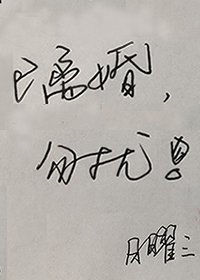 已离婚，
勿扰！
月曜三